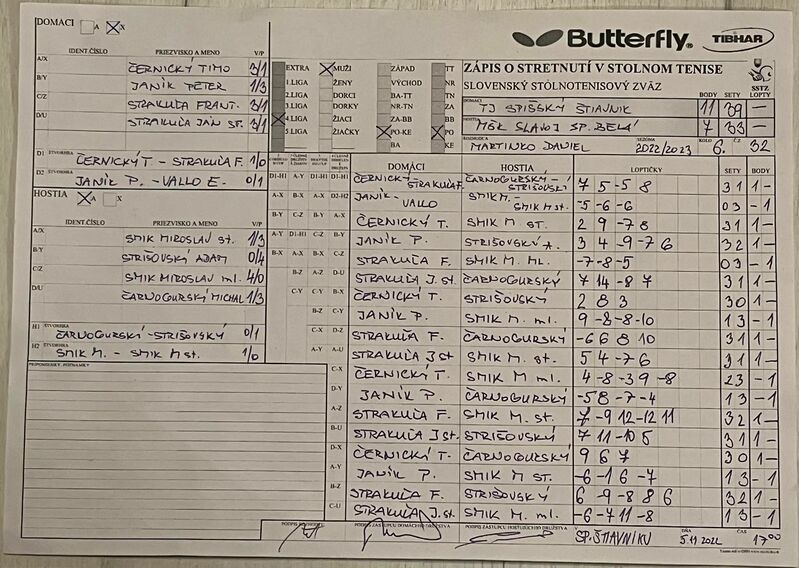 DOMACI A X
Butterfly TIBHAR
IDENT.ČÍSLO PRIEZVISKO A MENO V/P
A/X ČERNICKÝ TIMO 3/1
B/Y JANÍK PETER 1/3
C/Z STRAKUĽA FRANT. 3/1
D/U STRAKUĽA JÁN ST. 3/1
D1 ŠTVORHRA ČERNICKÝ T - STRAKUĽA F. 1/0
D2 ŠTVORHRA JANÍK P. - VALLO E. 0/1
HOSTIA A X
IDENT.ČÍSLO PRIEZVISKO A MENO V/P
A/X SMIK MIROSLAV st. 1/3
B/Y STRIŠOVSKÝ ADAM 0/4
C/Z SMIK MIROSLAV ml. 4/0
D/U ČARNOGURSKÝ MICHAL 1/3
H1 ŠTVORHRA ČARNOGURSKÝ-STRIŠOVSKÝ 0/1
H2 ŠTVORHRA SMIK M. - SMIK M st. 1/0
PRIPOMIENKY, POZNÁMKY
EXTRA MUŽI ZÁPAD TT
1.LIGA ŽENY VÝCHOD NR
2.LIGA DORCI BA-TT TN
3.LIGA DORKY NR-TN ZA
4.LIGA ŽIACI ZA-BB BB
5.LIGA ŽIAČKY PO-KE PO
BA KE
ZÁPIS O STRETNUTÍ V STOLNOM TENISE
SLOVENSKÝ STOLNOTENISOVÝ ZVÄZ
SSTZ
BODY SETY LOPTY
DOMACI TJ SPIŠSKÝ ŠTIAVNIK 11 39 —
HOSTIA MŠK SLAVOJ SP. BELÁ 7 33 —
ROZHODCA MARTINKO DANIEL SEZÓNA 2022/2023 KOLO 6. Č.Z 32
DOMÁCI HOSTIA LOPTIČKY SETY BODY
D1-H1 ČERNICKÝ - STRAKUĽA F. ČARNOGURSKÝ - STRIŠOVSKÝ 7 5 -5 8 3 1 1 -
D2-H2 JANÍK - VALLO SMIK M. - SMIK M st. -5 -6 -6 0 3 - 1
A-X ČERNICKÝ T. SMIK M st. 2 9 -7 8 3 1 1 -
B-Y JANÍK P. STRIŠOVSKÝ A. 3 4 -9 -7 6 3 2 1 -
C-Z STRAKUĽA F. SMIK M. ML. -7 -8 -5 0 3 - 1
D-U STRAKUĽA J. st. ČARNOGURSKÝ 7 14 -8 7 3 1 1 -
ČERNICKÝ T. STRIŠOVSKÝ 2 8 3 3 0 1 -
JANÍK P. SMIK M. ml. 9 -8 -8 -10 1 3 - 1
STRAKUĽA F. ČARNOGURSKÝ -6 6 8 10 3 1 1 -
STRAKUĽA J st SMIK M. st. 5 4 -7 6 3 1 1 -
C-X ČERNICKÝ T. SMIK M ml. 4 -8 -3 9 -8 2 3 - 1
D-Y JANÍK P. ČARNOGURSKÝ -5 8 -7 -4 1 3 - 1
A-Z STRAKUĽA F. SMIK M. st. 7 -9 12 -12 11 3 2 1 -
B-U STRAKUĽA J st. STRIŠOVSKÝ 7 11 -10 5 3 1 1 -
D-X ČERNICKÝ T. ČARNOGURSKÝ 9 6 7 3 0 1 -
A-Y JANÍK P. SMIK M ST. -6 -1 6 -7 1 3 - 1
B-Z STRAKUĽA F. STRIŠOVSKÝ 6 -9 -8 8 6 3 2 1 -
C-U STRAKUĽA J. st. SMIK M. ml. -6 -7 11 -8 1 3 - 1
PODPIS ROZHODCU PODPIS ZÁSTUPCU DOMÁCEHO DRUŽSTVA PODPIS ZÁSTUPCU HOSŤUJÚCEHO DRUŽSTVA V SP. ŠTIAVNIKU DŇA 5.11 2022 ČAS 17 00